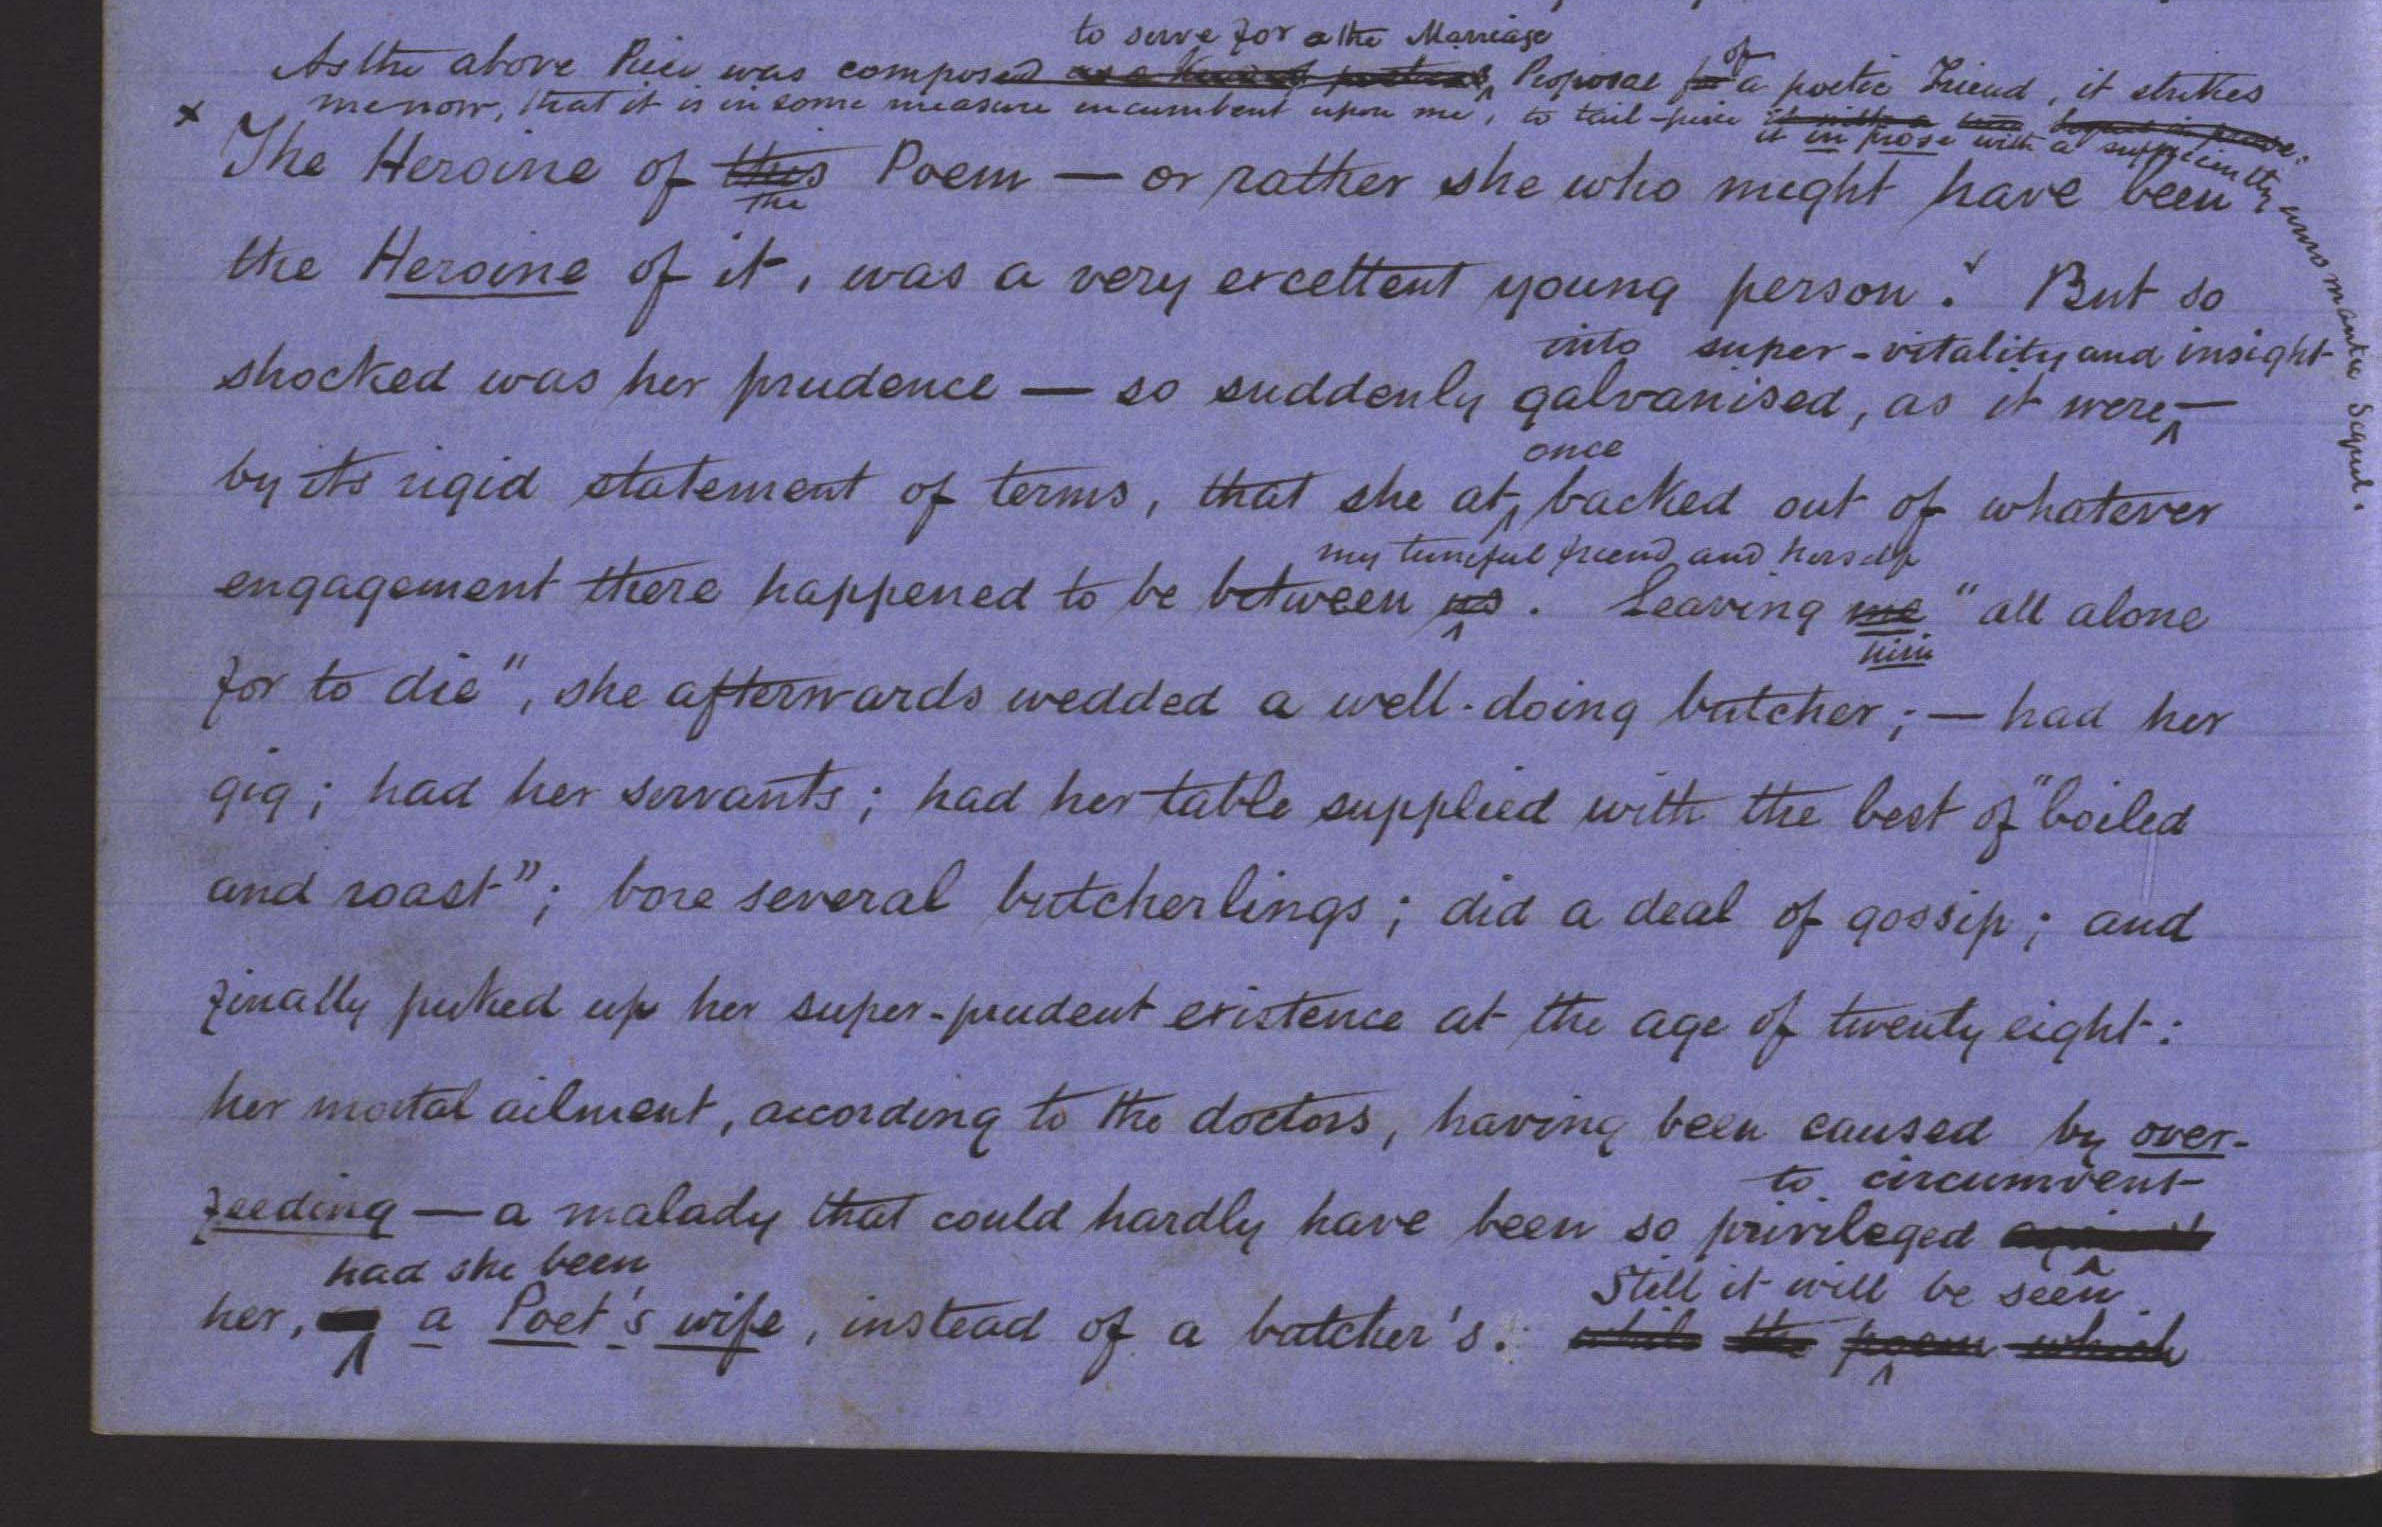 to serve for a the Marriage
As the above Piece was composed as a kind of poetical Proposal for of a poetic Friend, it strikes
me now, that it is in some measure incumbent upon me, to tail-piece it with a
it in prose with a sufficiently unromantic Sequel.
x The Heroine of this Poem — or rather she who might have been
the
the Heroine of it, was a very excellent young person. But so
into super-vitality and insight
shocked was her prudence — so suddenly galvanised, as it were, —
once
by its rigid statement of terms, that she at backed out of whatever
my tuneful friend and herself
engagement there happened to be between us. Leaving me "all alone
him
for to die", she afterwards wedded a well-doing butcher; — had her
gig; had her servants; had her table supplied with the best of "boiled
and roast"; bore several butcherlings; did a deal of gossip; and
finally puked up her super-prudent existence at the age of twenty eight:
her mortal ailment, according to the doctors, having been caused by over-
to circumvent
feeding — a malady that could hardly have been so privileged against
had she been
Still it will be seen
her, a Poet's wife, instead of a butcher's. while the poem which